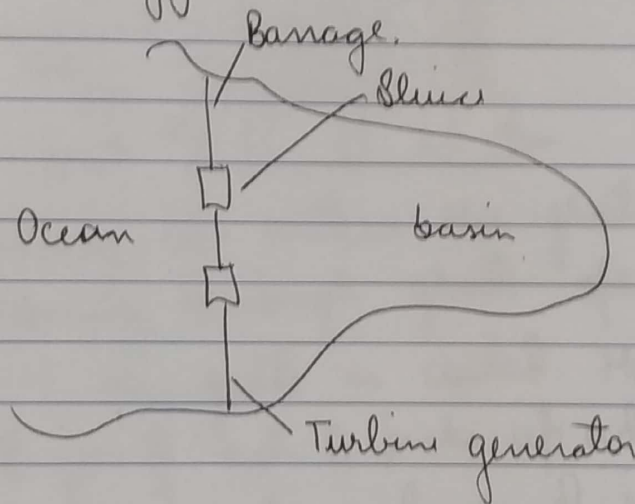 Barrage.
Sluice
Ocean
basin
Turbine generator